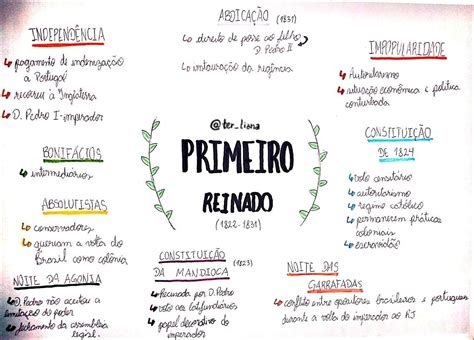 ABDICAÇÃO (1831)
↳ direito de posse ao filho
D. Pedro II
↳ instauração da regência
INDEPENDÊNCIA
↳ pagamento de indenização
a Portugal
↳ recorreu à Inglaterra
↳ D. Pedro I - imperador
IMPOPULARIDADE
↳ Autoritarismo
↳ situação econômica e política
conturbada
@ter_liana
PRIMEIRO
REINADO
(1822-1831)
BONIFÁCIOS
↳ intermediários
CONSTITUIÇÃO
DE 1824
↳ voto censitário
↳ autoritarismo
↳ regime católico
↳ permanecem práticas
coloniais
↳ escravidão
ABSOLUTISTAS
↳ conservadores
↳ queriam a volta do
Brasil como colônia
NOITE DA AGONIA
↳ D. Pedro não aceitou a
limitação de poder
↳ fechamento da assembleia
legisl.
CONSTITUIÇÃO
DA MANDIOCA (1823)
↳ Recusada por D. Pedro
↳ voto aos latifundiários
↳ papel decorativo do
imperador
NOITE DAS
GARRAFADAS
↳ conflito entre opositores brasileiros e portugueses
durante a volta do imperador ao RJ